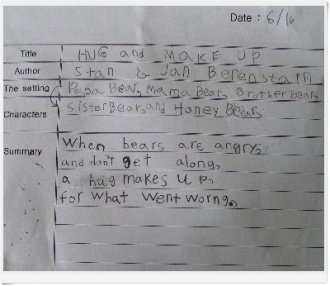 Date : 6/16
Title HUG and MAKE UP
Author Stan & Jan Berenstain
The setting Papa Bear, Mama Bear, Brother Bear,
Characters Sister Bear, and Honey Bear,
Summary When bears are angry
and don't get along,
a hug makes up,
for what went worng.